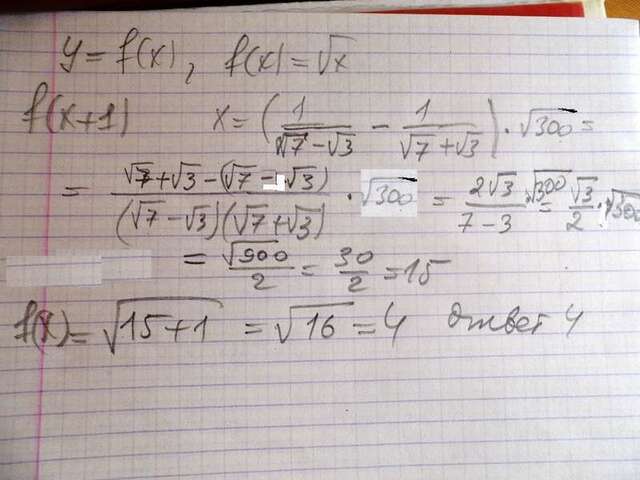 y = f(x), f(x) = √x
f(x+1) x = (1/(√7 − √3) − 1/(√7 + √3)) · √300 =
= (√7 + √3 − (√7 − √3))/((√7 − √3)(√7 + √3)) · √300 = (2√3 √300)/(7 − 3) = √3/2 · √300
= √900/2 = 30/2 = 15
f(x) = √(15+1) = √16 = 4 Ответ 4